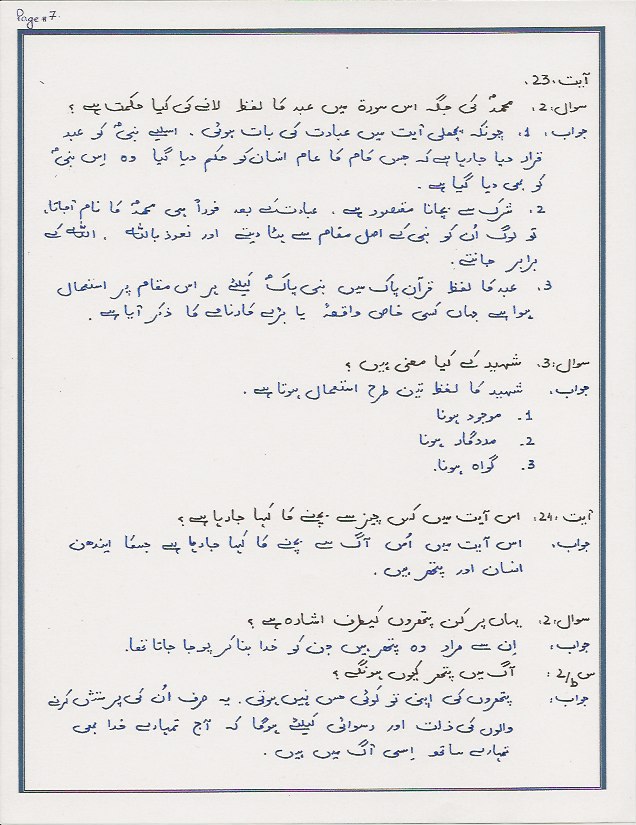 Page # 7.
آیت :23.
سوال :2: محمدؐ کی جگہ اس سورۃ میں عبد کا لفظ لانے کی کیا حکمت ہے ؟
جواب: 1. چونکہ پچھلی آیت میں عبادت کی بات ہوئی . اسلیے نبیؐ کو عبد
قرار دیا جارہا ہے کہ جس کام کا عام انسان کو حکم دیا گیا وہ اس نبیؐ
کو بھی دیا گیا ہے .
2. شرک سے بچانا مقصود ہے . عبادت کے بعد فوراً ہی محمدؐ کا نام آجاتا.
تو لوگ اُن کو نبی کے اصل مقام سے ہٹا دیتے اور نعوذ باللہ . اللہ کے
برابر جانتے .
3. عبد کا لفظ قرآن پاک میں نبی پاکؐ کیلئے ہر اس مقام پر استعمال
ہوا ہے جہاں کسی خاص واقعہ یا بڑے کارنامے کا ذکر آیا ہے .
سوال :3. شہید کے کیا معنی ہیں ؟
جواب. شہید کا لفظ تین طرح استعمال ہوتا ہے .
1. موجود ہونا
2. مددگار ہونا
3. گواہ ہونا.
آیت :24: اس آیت میں کس چیز سے بچنے کا کہا جارہا ہے ؟
جواب. اس آیت میں اُس آگ سے بچنے کا کہا جارہا ہے جسکا ایندھن
انسان اور پتھر ہیں .
سوال :2: یہاں پر کن پتھروں کیطرف اشادہ ہے ؟
جواب: اِن سے مراد وہ پتھر ہیں جن کو خدا بنا کر پوجا جاتا تھا.
س 2/b : آگ میں پتھر کیوں ہونگے ؟
جواب: پتھروں کی اپنی تو کوئی حس نہیں ہوتی . یہ صرف اُن کی پرستش کرنے
والوں کی ذلت اور رسوائی کیلئے ہوگا کہ آج تمہارے خدا بھی
تمہارے ساتھ اِسی آگ میں ہیں .